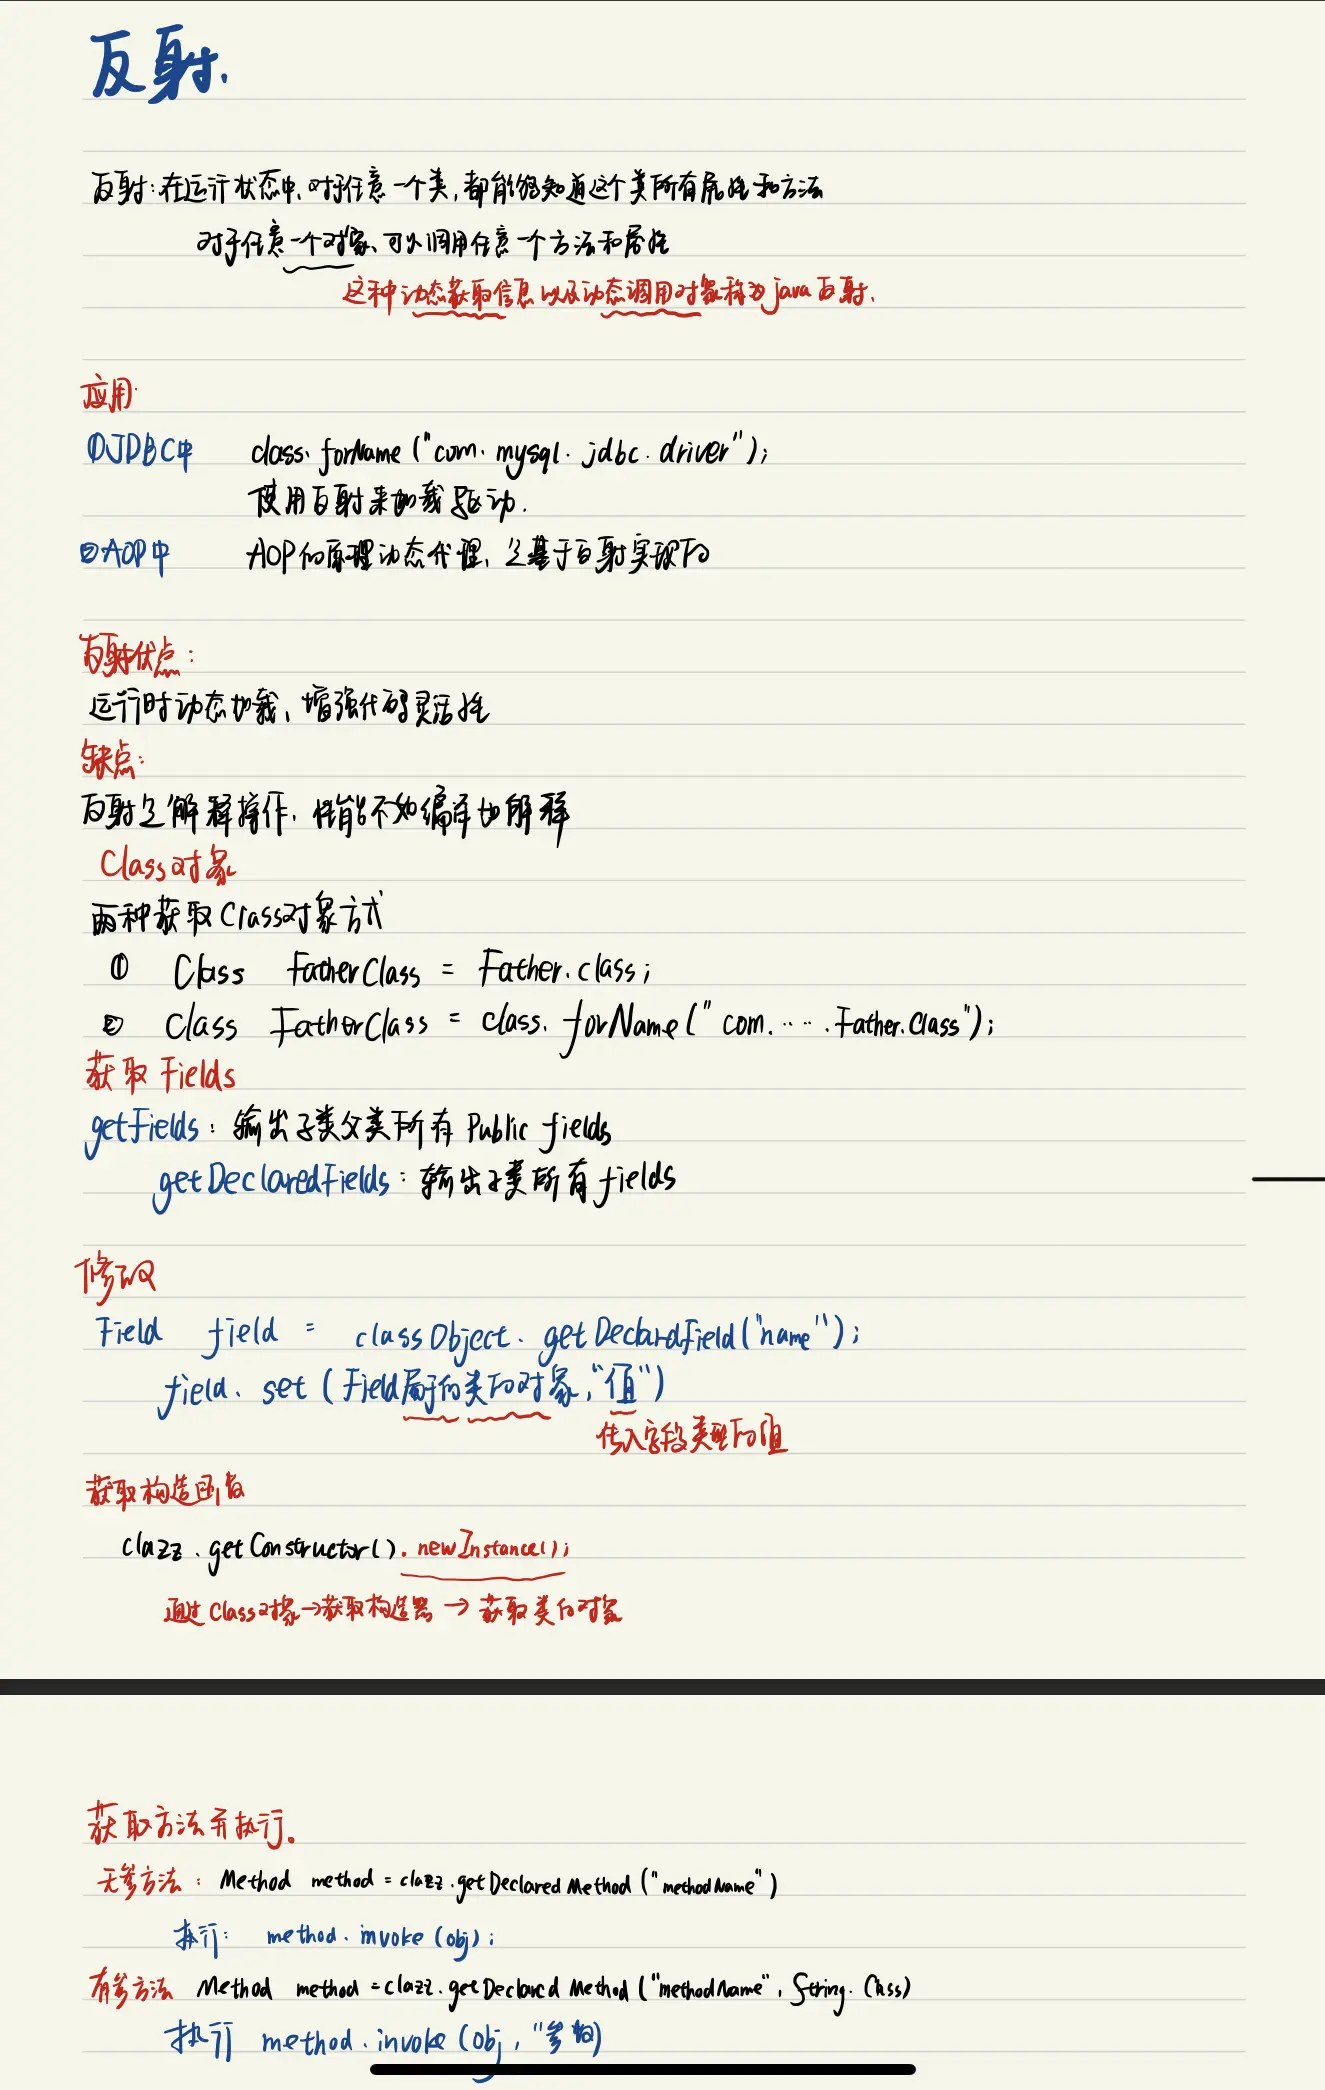 反射.
反射:在运行状态中,对于任意一个类,都能够知道这个类所有属性和方法
对于任意一个对象、可以调用任意一个方法和属性
这种动态获取信息以及动态调用对象称为java反射.
应用
①JDBC中 class.forName("com.mysql.jdbc.driver");
使用反射来加载驱动.
②AOP中 AOP的原理动态代理、是基于反射实现的
反射优点:
运行时动态加载、增强代码灵活性
缺点:
反射是解释操作,性能不如编译加解释
Class对象
两种获取Class对象方式
① Class FatherClass = Father.class;
② Class FatherClass = class.forName("com.…….Father.Class");
获取Fields
getFields: 输出子类父类所有Public fields
getDeclaredFields: 输出子类所有fields
修改
Field field = classObject.getDeclardField("name");
field.set(Field属于的类的对象,"值")
传入字段类型的值
获取构造函数
clazz.getConstructor().newInstance();
通过Class对象→获取构造器→获取类的对象
获取方法并执行。
无参方法: Method method = clazz.getDeclaredMethod("methodName")
执行: method.invoke(obj);
有参方法 Method method = clazz.getDeclared Method("methodName", String.Class)
执行 method.invoke(obj,"参数)